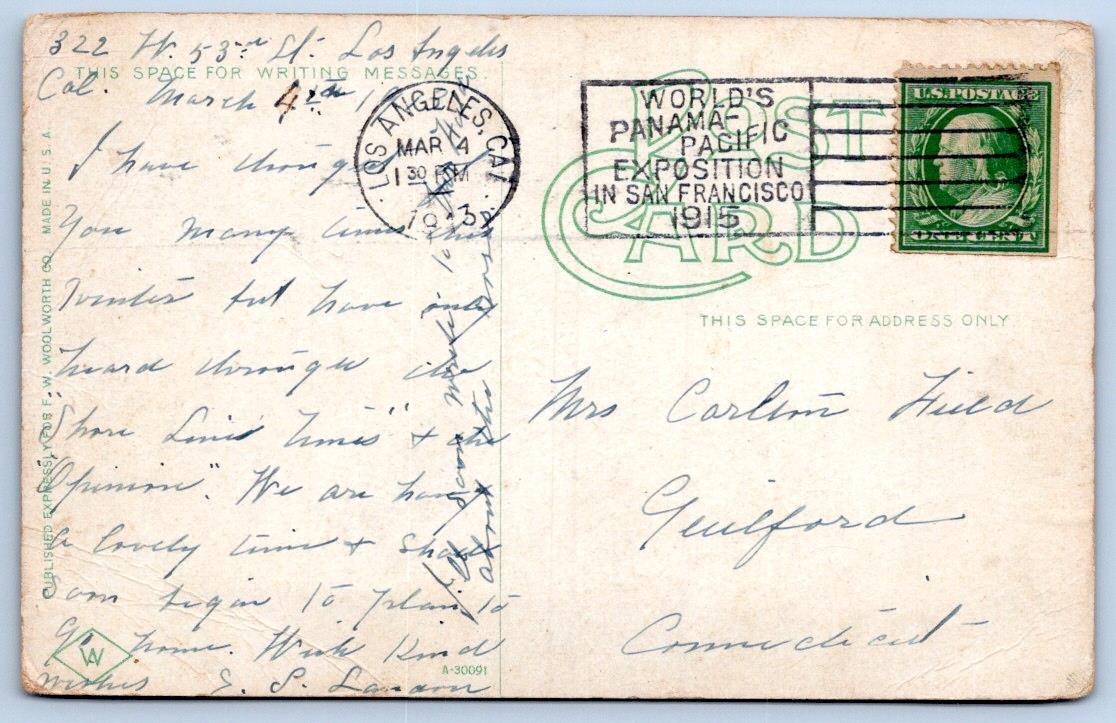 322 W. 53rd St. Los Angeles
THIS SPACE FOR WRITING MESSAGES.
Cal. March 4th
I have though
You many times this
winter but have only
heard through the
"Shore Line Times" & the
"Opinion". We are having
a lovely time & shall
soon begin to plan to
go home. With kind
wishes E. S. Landon
soon write to
about the
PUBLISHED EXPRESSLY FOR F. W. WOOLWORTH CO. MADE IN U. S. A.
W
A-30091
LOS ANGELES, CAL.
MAR 4
1 30 PM
1913
WORLD'S
PANAMA-
PACIFIC
EXPOSITION
IN SAN FRANCISCO
1915
POST
CARD
U.S. POSTAGE
ONE CENT
THIS SPACE FOR ADDRESS ONLY
Mrs Carlton Field
Guilford
Connecticut